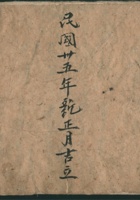 民國廿五年新正月吉立